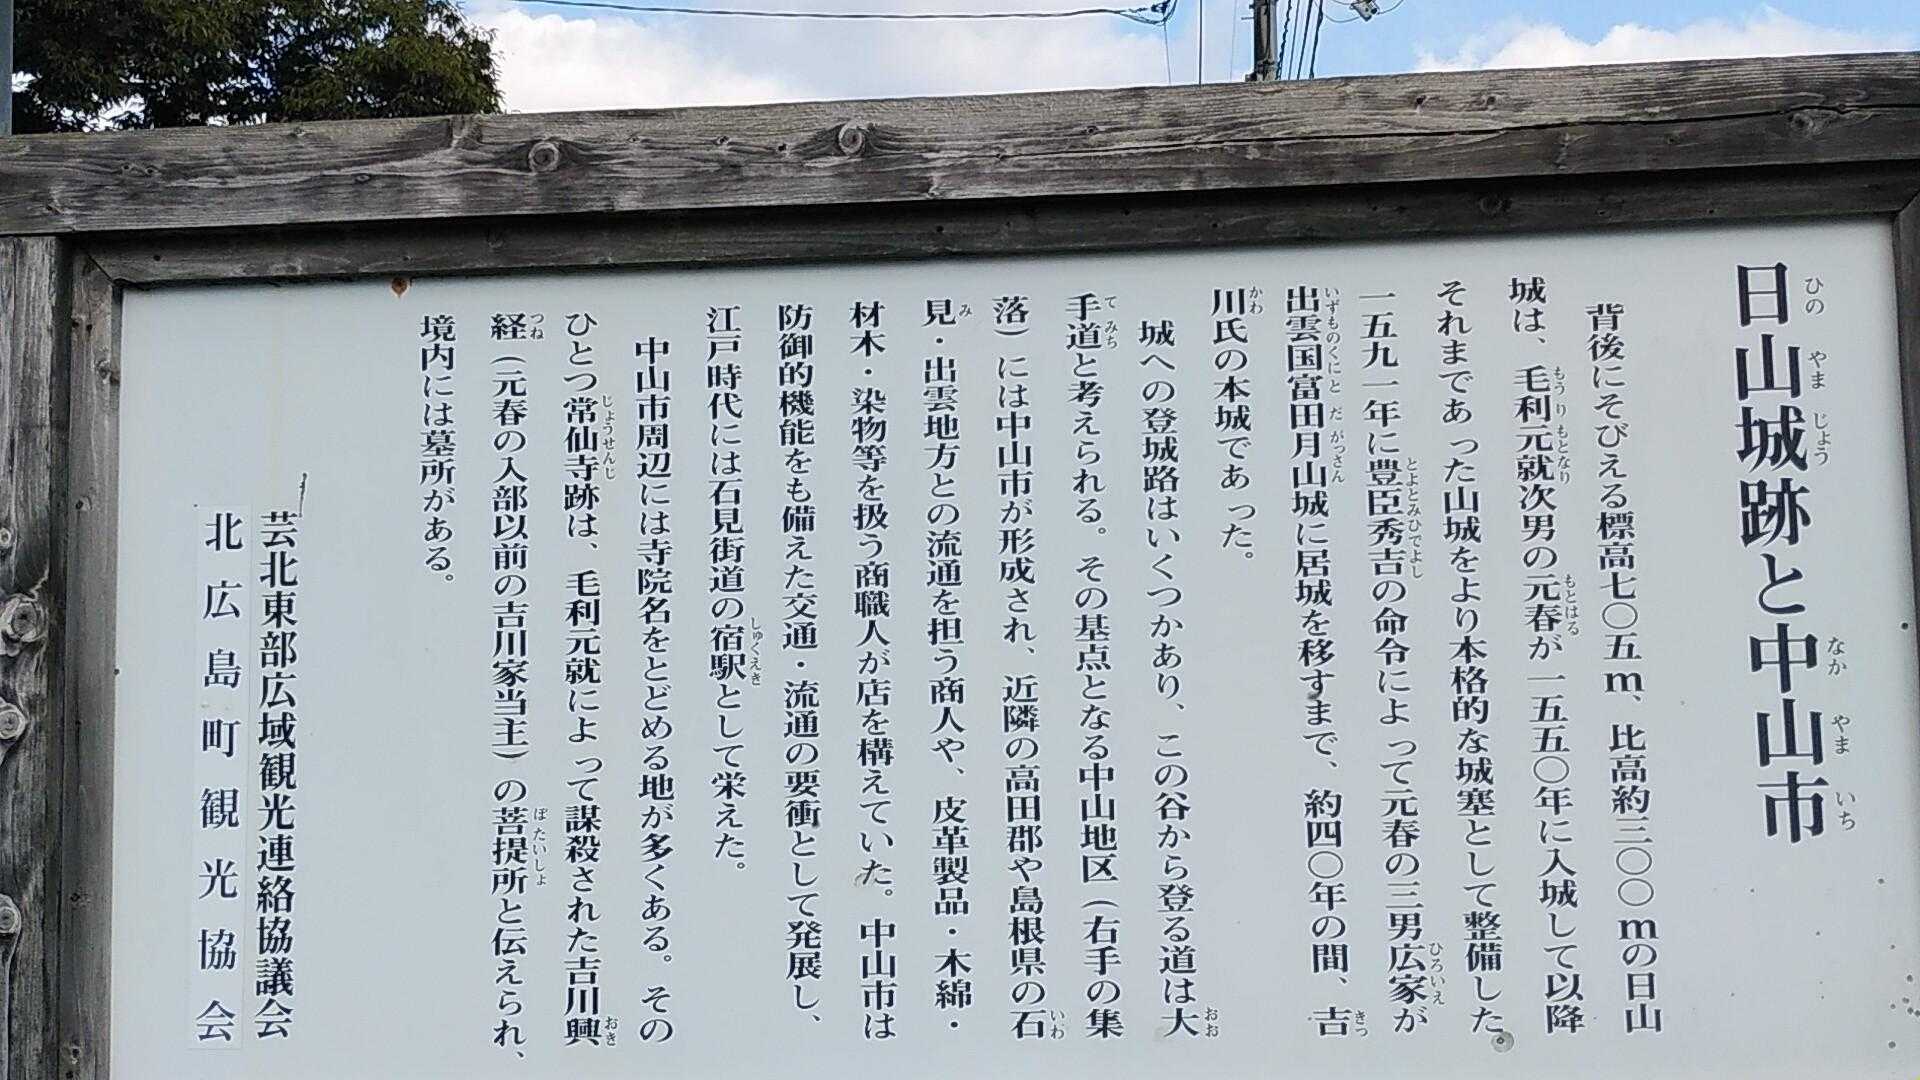 日山城跡と中山市
背後にそびえる標高七〇五m、比高約三〇〇mの日山
城は、毛利元就次男の元春が一五五〇年に入城して以降
それまであった山城をより本格的な城塞として整備した
一五九一年に豊臣秀吉の命令によって元春の三男広家が
出雲国富田月山城に居城を移すまで、約四〇年の間、吉
川氏の本城であった。
城への登城路はいくつかあり、この谷から登る道は大
手道と考えられる。その基点となる中山地区（右手の集
落）には中山市が形成され、近隣の高田郡や島根県の石
見・出雲地方との流通を担う商人や、皮革製品・木綿・
材木・染物等を扱う商職人が店を構えていた。中山市は
防御的機能をも備えた交通・流通の要衝として発展し、
江戸時代には石見街道の宿駅として栄えた。
中山市周辺には寺院名をとどめる地が多くある。その
ひとつ常仙寺跡は、毛利元就によって謀殺された吉川興
経（元春の入部以前の吉川家当主）の菩提所と伝えられ、
境内には墓所がある。
芸北東部広域観光連絡協議会
北広島町観光協会